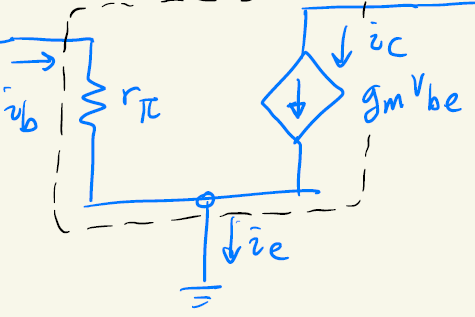 i_b
r_π
i_c
g_m v_be
i_e